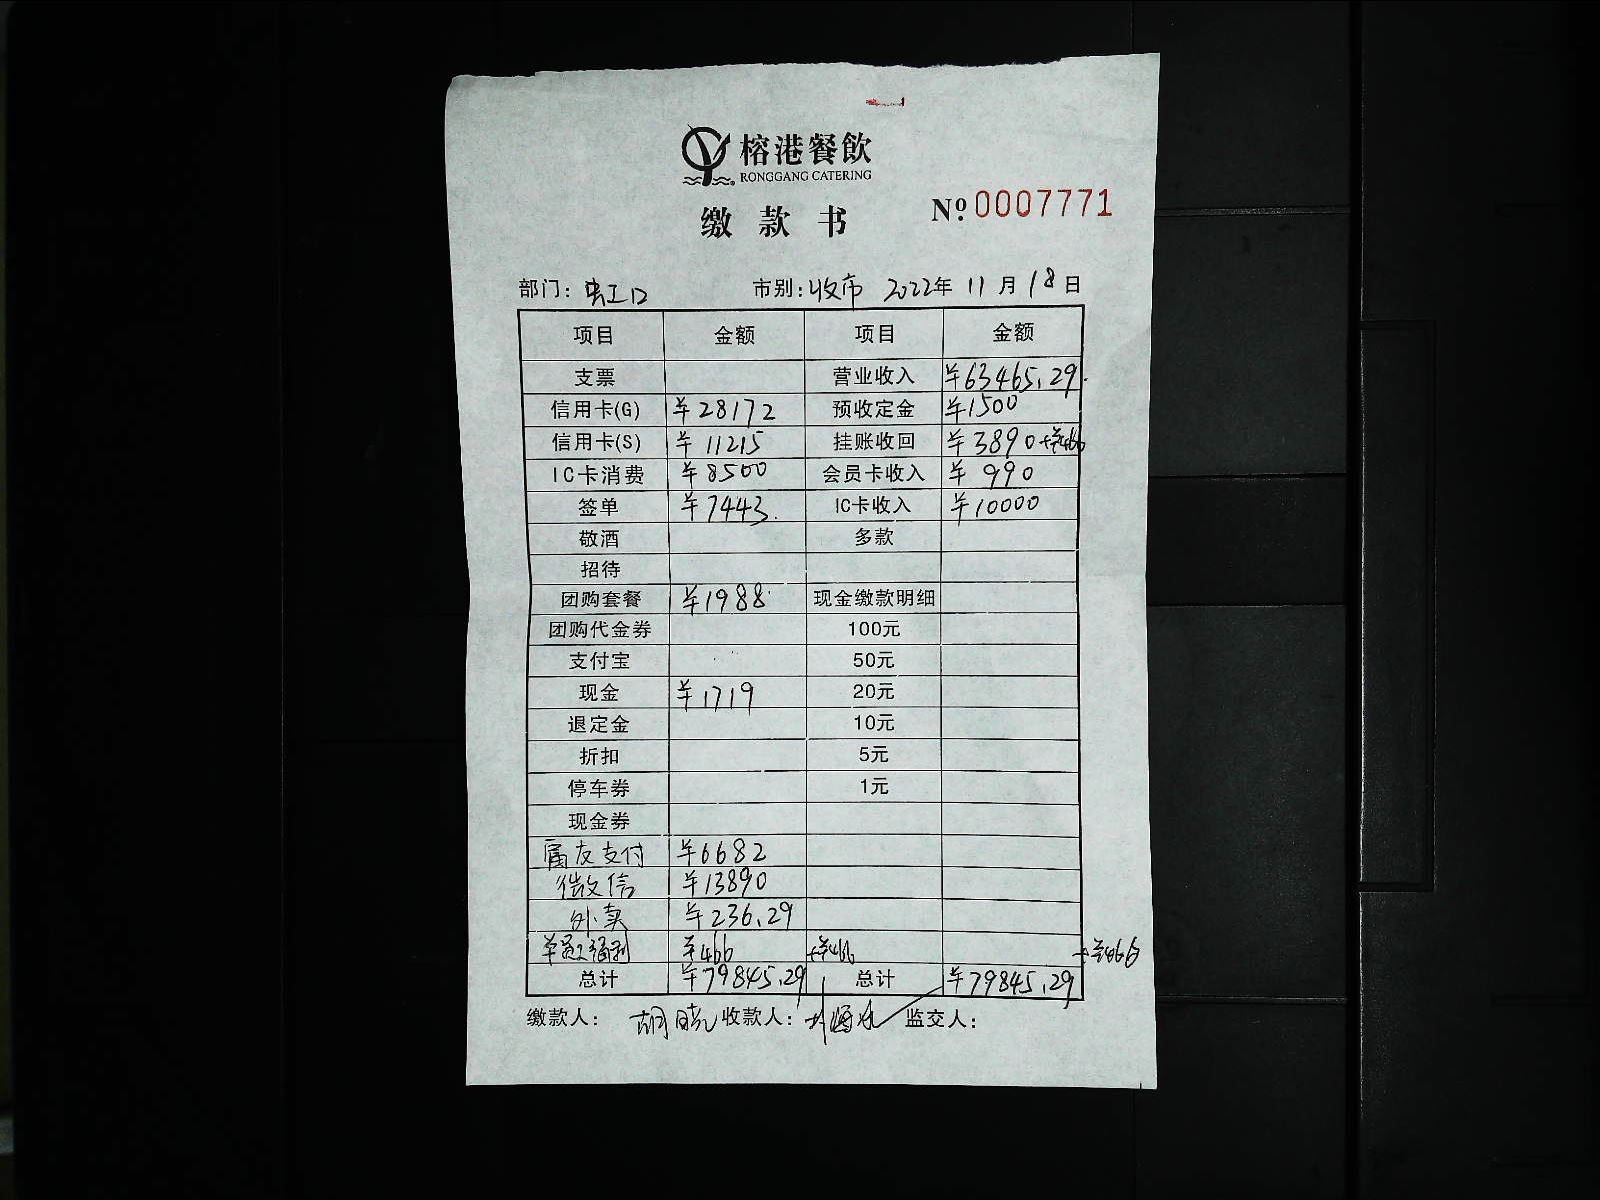 榕港餐飲
RONGGANG CATERING
缴款书
№ 0007771
部门： 虹口 市别：收市 2022年 11月 18日
项目 金额 项目 金额
支票 营业收入 ¥63465.29
信用卡(G) ¥28172 预收定金 ¥1500
信用卡(S) ¥11215 挂账收回 ¥3890+¥466
IC卡消费 ¥8500 会员卡收入 ¥990
签单 ¥7443 IC卡收入 ¥10000
敬酒 多款
招待
团购套餐 ¥1988 现金缴款明细
团购代金券 100元
支付宝 50元
现金 ¥1719 20元
退定金 10元
折扣 5元
停车券 1元
现金券
富友支付 ¥6682
微信 ¥13890
外卖 ¥236.29
¥466 +¥466 +¥466
总计 ¥79845.29 总计 ¥79845.29
缴款人： 胡晓 收款人： 监交人：